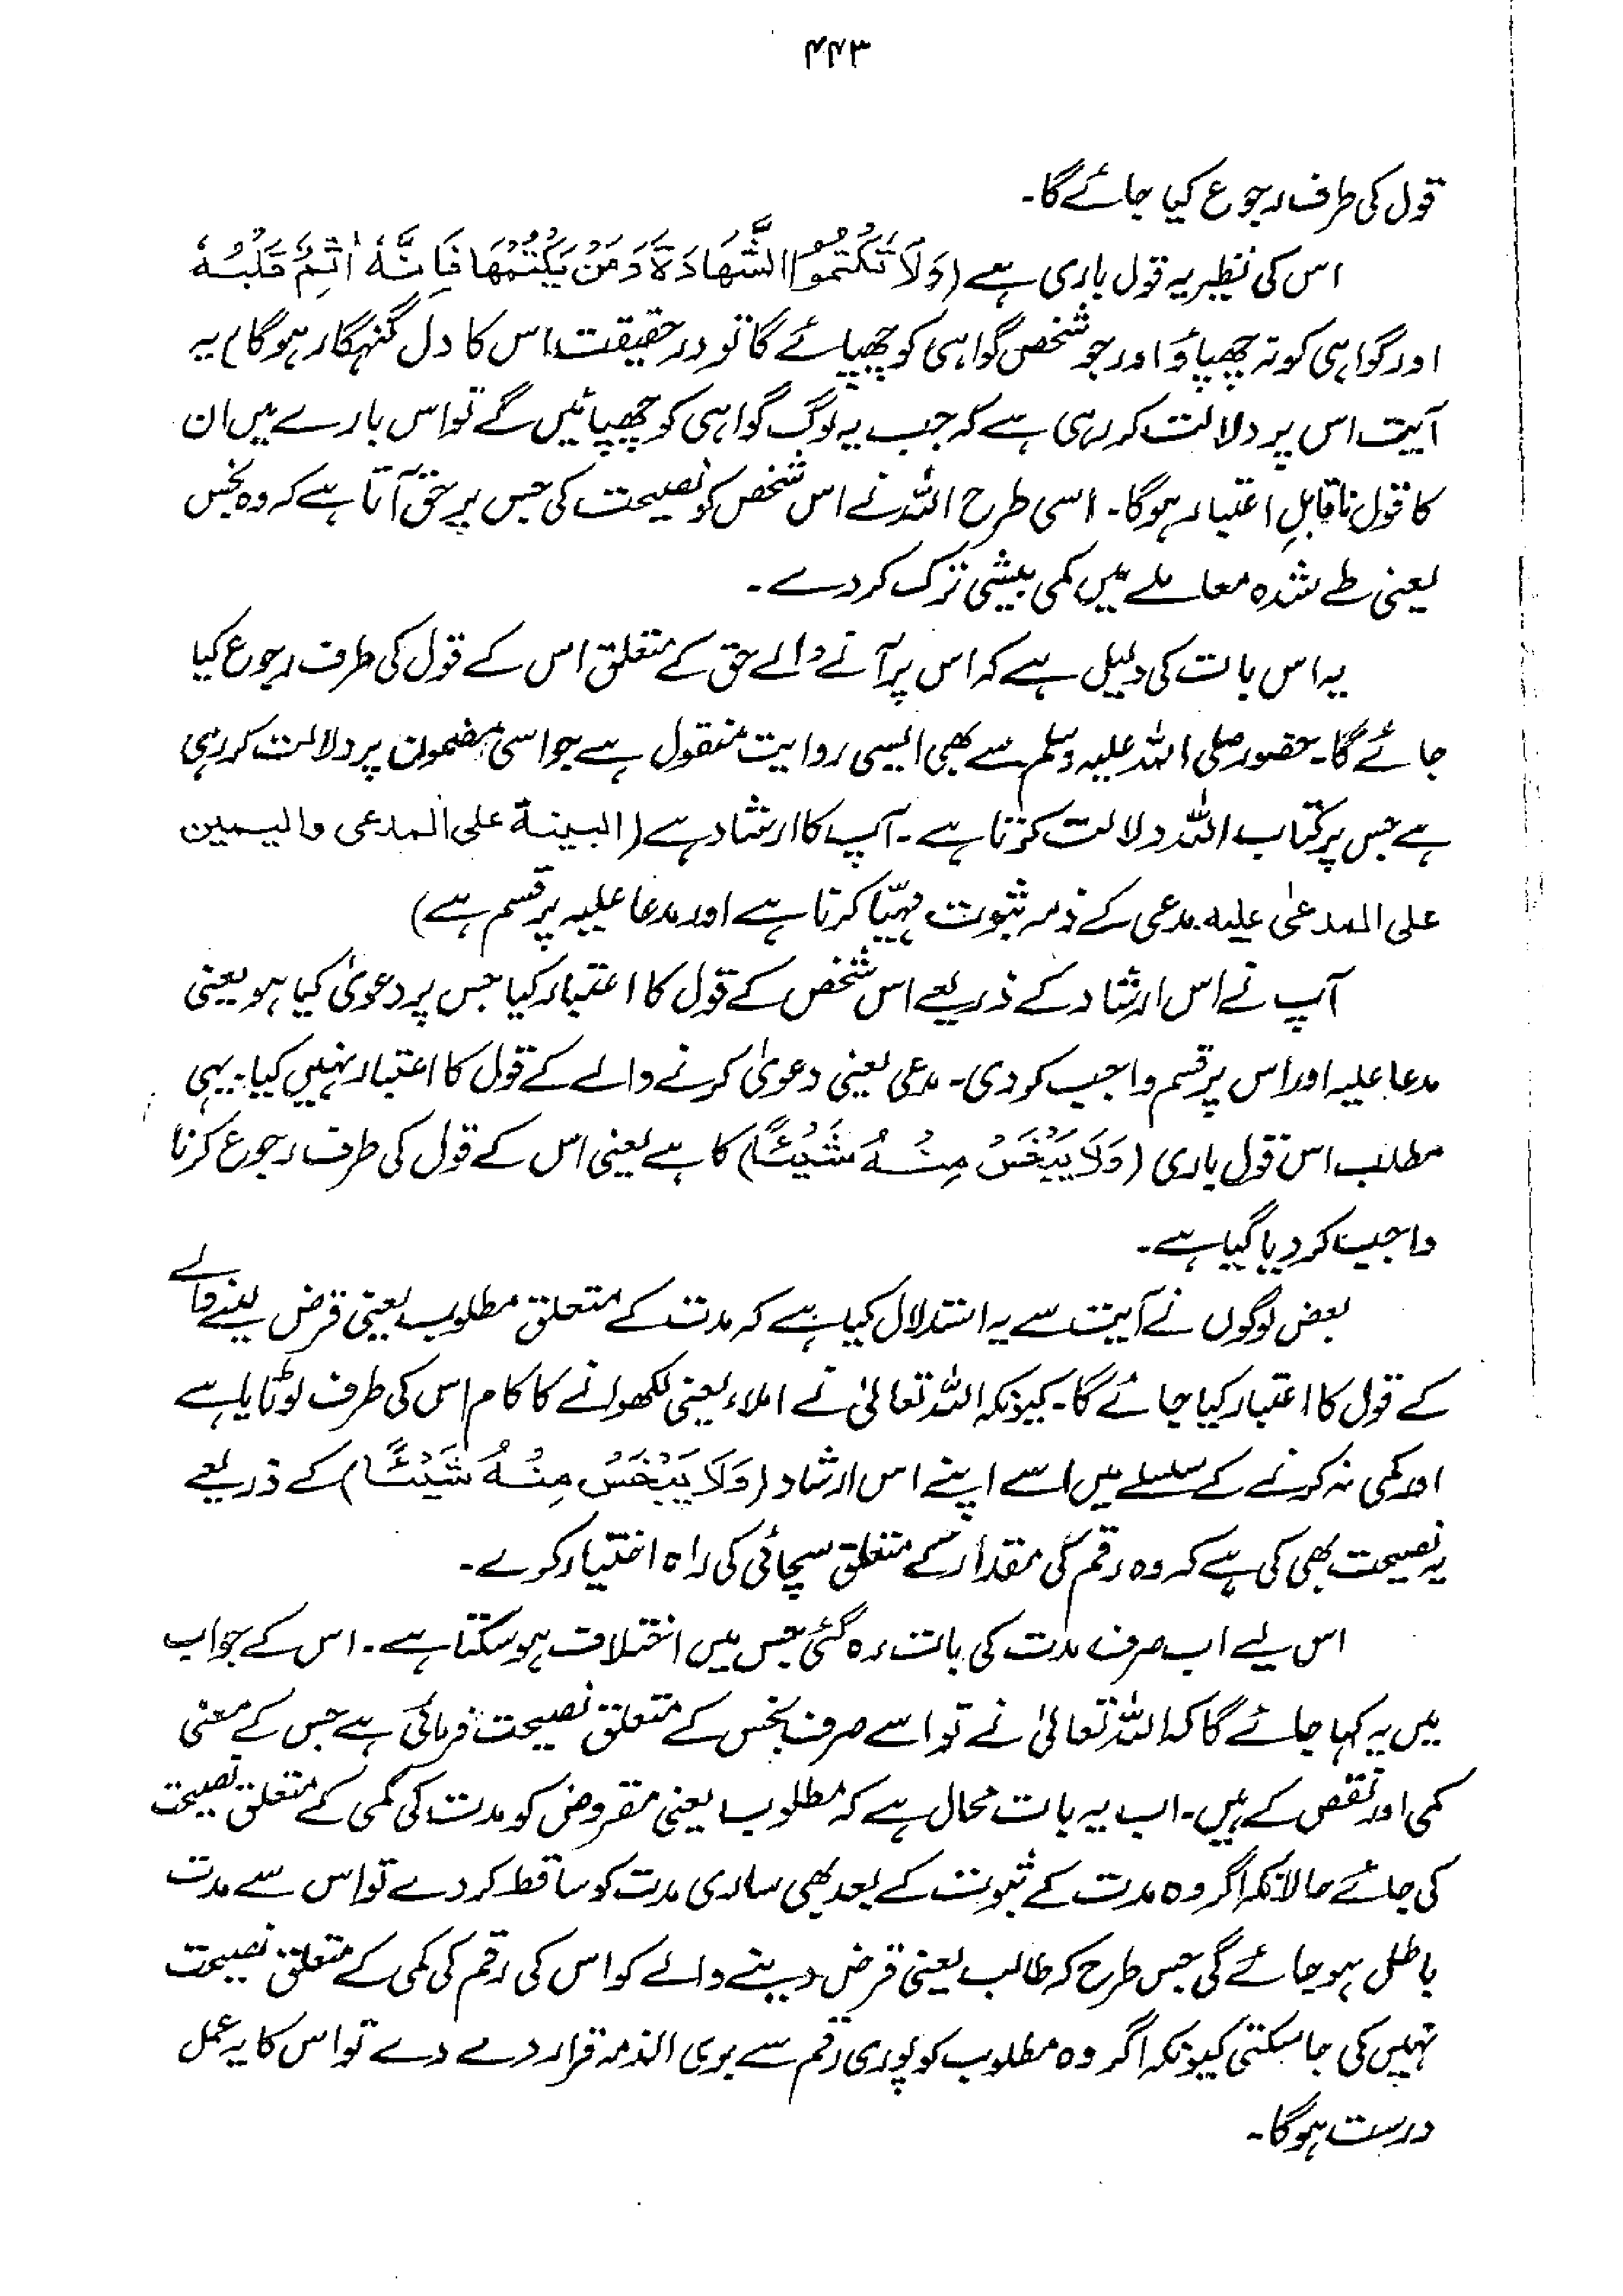 ۴۴۳
قول کی طرف رجوع کیا جائے گا۔
اس کی نظیر یہ قول باری ہے (وَلَا تَكْتُمُوا الشَّهَادَةَ وَمَنْ يَكْتُمْهَا فَإِنَّهُ اٰثِمٌ قَلْبُهُ
اور گواہی کو نہ چھپاؤ اور جو شخص گواہی کو چھپائے گا تو در حقیقت اس کا دل گنہگار ہوگا) یہ
آیت اس پر دلالت کر رہی ہے کہ جب یہ لوگ گواہی کو چھپائیں گے تو اس بارے میں ان
کا قول ناقابلِ اعتبار ہوگا۔ اسی طرح اللہ نے اس شخص کو نصیحت کی جس پر حق آتا ہے کہ وہ بخس
یعنی طے شدہ معاملے میں کمی بیشی ترک کر دے۔
یہ اس بات کی دلیل ہے کہ اس پر آنے والے حق کے متعلق اس کے قول کی طرف رجوع کیا
جائے گا۔ حضور صلی اللہ علیہ وسلم سے بھی ایسی روایت منقول ہے جو اسی مضمون پر دلالت کر رہی
ہے جس پر کتاب اللہ دلالت کرتا ہے۔ آپ کا ارشاد ہے (البینة علی المدعی والیمین
علی المدعیٰ علیه۔ مدعی کے ذمہ ثبوت مہیّا کرنا ہے اور مدعا علیہ پر قسم ہے)
آپ نے اس ارشاد کے ذریعے اس شخص کے قول کا اعتبار کیا جس پر دعویٰ کیا ہو یعنی
مدعا علیہ اور اس پر قسم واجب کر دی۔ مدعی یعنی دعویٰ کرنے والے کے قول کا اعتبار نہیں کیا۔ یہی
مطلب اس قول باری (وَلَا يَبْخَسْ مِنْهُ شَيْئًا) کا ہے یعنی اس کے قول کی طرف رجوع کرنا
واجب کر دیا گیا ہے۔
بعض لوگوں نے آیت سے یہ استدلال کیا ہے کہ مدت کے متعلق مطلوب یعنی قرض لینے والے
کے قول کا اعتبار کیا جائے گا۔ کیونکہ اللہ تعالیٰ نے املاء یعنی لکھوانے کا کام اس کی طرف لوٹایا ہے
اور کمی نہ کرنے کے سلسلے میں اسے اپنے اس ارشاد (وَلَا يَبْخَسْ مِنْهُ شَيْئًا) کے ذریعے
یہ نصیحت بھی کی ہے کہ وہ رقم کی مقدار کے متعلق سچائی کی راہ اختیار کرے۔
اس لیے اب صرف مدت کی بات رہ گئی جس میں اختلاف ہو سکتا ہے۔ اس کے جواب
میں یہ کہا جائے گا کہ اللہ تعالیٰ نے تو اسے صرف بخس کے متعلق نصیحت فرمائی ہے جس کے معنی
کمی اور نقص کے ہیں۔ اب یہ بات محال ہے کہ مطلوب یعنی مقروض کو مدت کی کمی کے متعلق نصیحت
کی جائے حالانکہ اگر وہ مدت کے ثبوت کے بعد بھی ساری مدت کو ساقط کر دے تو اس سے مدت
باطل ہو جائے گی جس طرح کہ طالب یعنی قرض دینے والے کو اس کی رقم کی کمی کے متعلق نصیحت
نہیں کی جا سکتی کیونکہ اگر وہ مطلوب کو پوری رقم سے بری الذمہ قرار دے دے تو اس کا یہ عمل
درست ہوگا۔